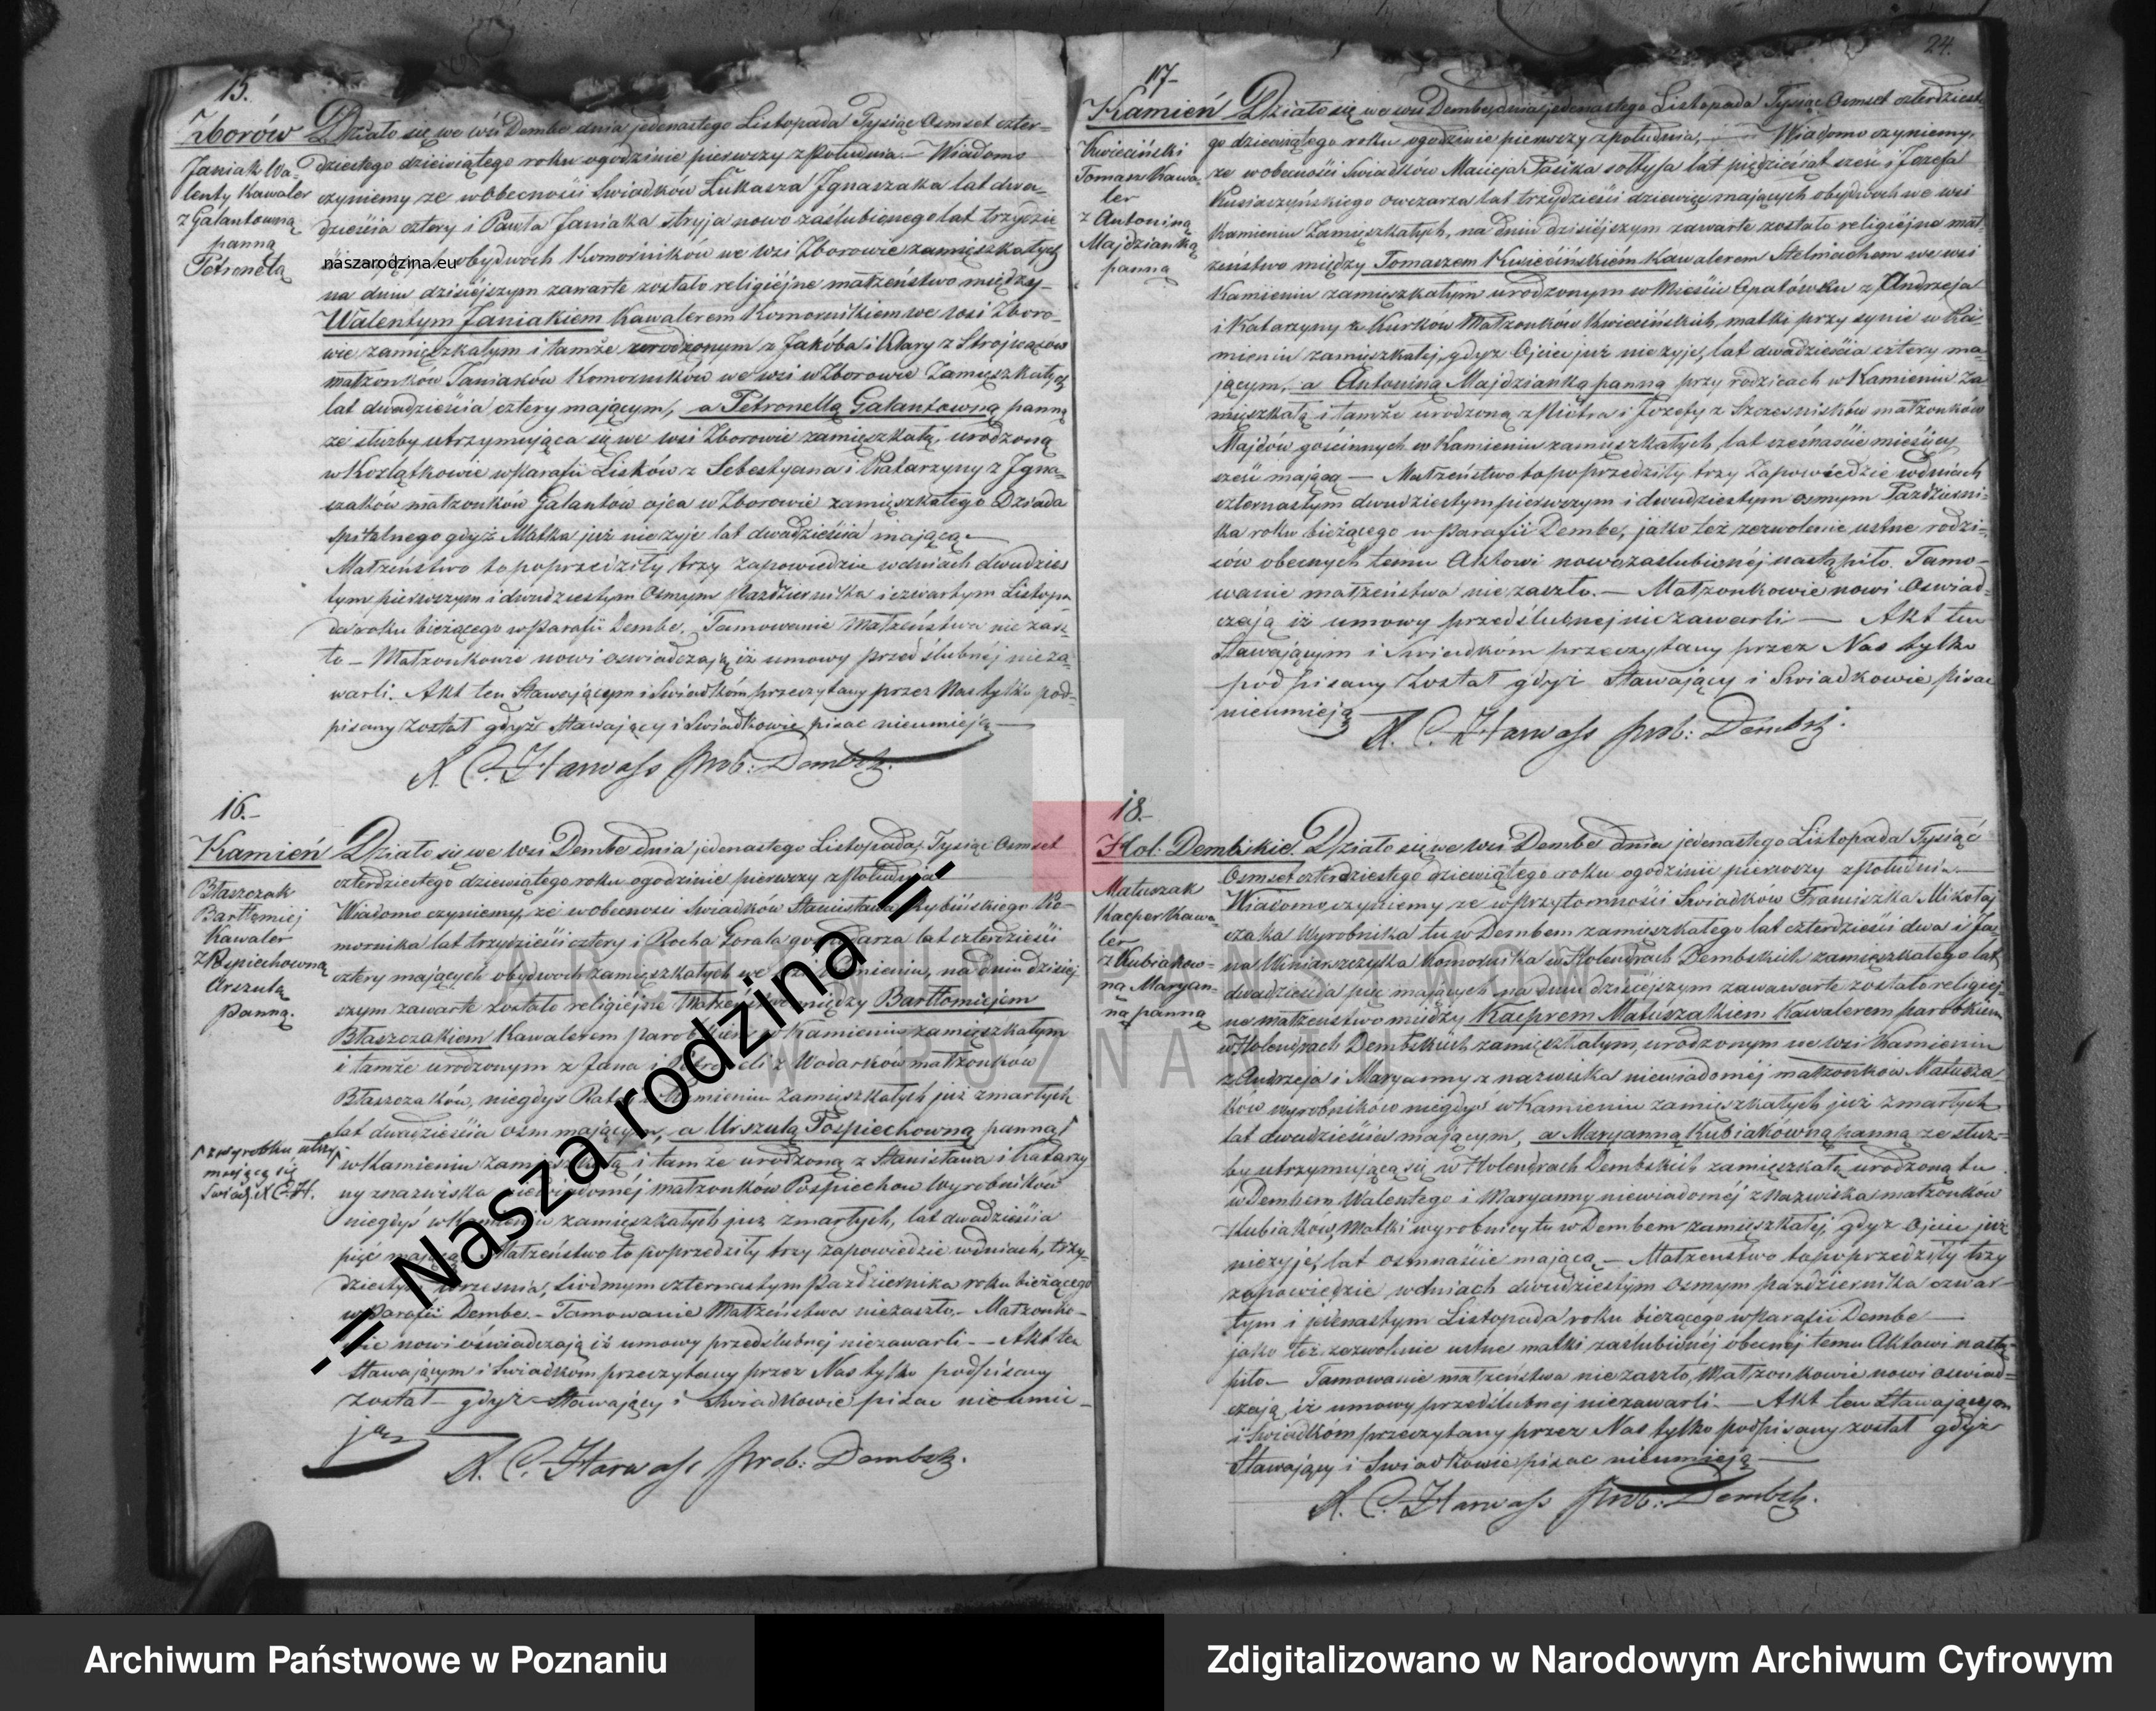 24.
15.
Zborów
Janiak Wa-
lenty Kawaler
z Galantowną
panną
Petronelą
Działo się we wsi Dembe dnia jedenastego Listopada Tysiąc Osmset czter-
dziestego dziewiątego roku ogodzinie pierwszy z południa. — Wiadomo
czyniemy ze w obecności Swiadków Łukasza Ignaszaka lat dwa-
dzieścia cztery i Pawła Janiaka stryja nowo zaślubionego lat trzydzie-
naszarodzina.eu
obydwoch Komorników we wsi Zborowie zamięszkałych
na dniu dzisiejszym zawarte zostało religiejne małżeństwo między-
Walentym Janiakiem Kawalerem Komornikiem we wsi Zboro-
wie zamięszkałym i tamże urodzonym z Jakóba i Klary z Strojwąsów
małzonków Janiaków Komorników we wsi w Zborowie Zamięszkałych
lat dwadzieścia cztery mającym, a Petronellą Galantowną panną
ze służby utrzymująca się we wsi Zborowie zamięszkałą, urodzoną
w Koźlątkowie w Parafii Lisków z Sebestyana i Katarzyny z Igna-
szaków małzonków Galantow ojca w Zborowie zamięszkałego Dziada
szpitalnego gdyż Matka już nie zyje lat dwadzieścia mającą —
Małżeństwo to poprzedziły trzy zapowiedzie w dniach dwudzies
tym pierwszym i dwudziestym Osmym Października i czwartym Listopa
da roku bieżącego w Parafii Dembe. Tamowanie Małżeństwa nie zasz-
ło — Małzonkowie nowi oswiadczają iż umowy przed ślubnej nieza-
warli. Akt ten Stawającym i Swiadkóm przeczytany przez Nas tylko pod-
pisany został gdyż stawający i Swiadkowie pisac nieumieją —
X. C. Harwass prob: Dembsk.
16.-
Kamień
Błaszczak
Bartłomiej
Kawaler
z Pospiechowną
Urszulą
panną.
Działo się we wsi Dembe dnia jedenastego Listopada, Tysiąc Osmset
czterdziestego dziewiątego roku ogodzinie pierwszy z południa
Wiadomo czyniemy, że w obecności Swiadków Stanisława Rybińskiego Ko-
mornika lat trzydzieści cztery i Rocha Gorala gospodarza lat czterdzieści
cztery mających obydwoch zamięszkałych we wsi Kamieniu, na dniu dzisiej-
szym zawarte zostało religiejne Małżeństwo między Bartłomiejem
Błaszczakiem Kawalerem parobkiem w Kamieniu zamięszkałym
i tamże urodzonym z Jana i Petroneli z Wodarków małzonkow
Błaszczaków, niegdys Rataj w Kamieniu zamieszkałych już zmarłych
lat dwadzieścia osm mającym, a Urszulą Pospiechowną panną
z wyrobku utrzy
mującą się
Swiad: X C. H.
w Kamieniu zamięszkałą i tamże urodzoną z Stanisława i Katarzy
ny znazwiska niewiadoméj małzonków Pospiechow Wyrobników
niegdyś w Kamieniu zamięszkałych juz zmarłych, lat dwadzieścia
pięć mającą. Małżeństwo to poprzedziły trzy zapowiedzie w dniach, trzy-
dziestym Wrzesnia, Siodmym czternastym Października roku bieżącego
w Parafii Dembe. - Tamowanie Małżeństwa niezaszło. - Małzonko-
wie nowi oświadczają iż umowy przedślubnej niezawarli — Akt ten
Stawającym i Swiadkóm przeczytany przez Nas tylko podpisany
został — gdyż Stawający i Swiadkowie pisac nieumie-
ją
X. C. Harwass prob: Dembsk.
17-
Kamień
Kwieciński
Tomasz Kawa-
ler
z Antoniną
Majdzianką
panną
Działo się we wsi Dembe dnia jedenastego Listopada Tysiąc Osmset czterdzieste
go dziewiątego roku ogodzinie pierwszy z południa. — Wiadomo czyniemy,
ze w obecności Swiadków Macieja sołtysa lat pięćdziesiat sześć i Jozefa
owczarza lat trzydzieści dziewięć mających obydwoch we wsi
Kamieniu Zamięszkałych, na dniu dzisiejszym zawarte zostało religiejne mał-
zeństwo między Tomaszem Kwiecińskiém Kawalerem Stelmachem we wsi
Kamieniu zamięszkałym urodzonym w Mieście Opatówku z Andrzeja
i Katarzyny z Kurków Małzonków Kwiecińskich, matki przy synie w Ka-
mieniu zamieszkałej, gdyz Ojciec już nie zyje, lat dwadzieścia cztery ma-
jącym, a Antoniną Majdzianką panną przy rodzicach w Kamieniu Za
mięszkałą i tamże urodzoną z Piotra i Jozefy z Szczesnisków małzonków
Majdów gościnnych w Kamieniu zamięszkałych, lat szesnaście miesięcy
sześć mającą — Małzeństwo to poprzedziły trzy Zapowiedzie w dniach
czternastym dwudziestym pierwszym i dwudziestym osmym Październi-
ka roku bieżącego w Parafii Dembe, jako też zezwolenie ustne rodzi-
ców obecnych temu Aktowi nowozaslubionéj nastąpiło. Tamo-
wanie małżeństwa nie zaszło. — Małzonkowie nowi Oswiad-
czają iż umowy przedślubnej niezawarli — Akt ten
Stawającym i Swiadkóm przeczytany przez Nas tylko
podpisany został gdyż Stawający i Swiadkowie pisac
nieumieją
X. C. Harwass prob: Dembsk.
18.-
Hol. Dembskie
Matuszak
Kacper Kawa-
ler
z Kubiakow-
ną Maryan-
ną panną
Działo się we wsi Dembe dnia jedenastego Listopada Tysiąć
Osmset czterdziestego dziewiątego roku ogodzinie pierwszy z południa. —
Wiadomo czyniemy ze w przytomności Swiadków Franciszka Mikołaj
czaka Wyrobnika tu w Dembem zamięszkałego lat czterdzieści dwa i Ja-
na Winiarszczyka Komornika w Holendrach Dembskich zamięszkałego lat
dwadzieścia pięć mających na dniu dzisiejszym zawawarte zostało religiej-
ne małzenstwo między Kacprem Matuszakiem Kawalerem parobkiem
w Holendrach Dembskich zamięszkałym, urodzonym we wsi Kamieniu
z Andrzeja i Maryanny z nazwiska niewiadoméj małzonkow Matusza-
ków wyrobników niegdys w Kamieniu zamięszkałych już zmarłych
lat dwadzieścia mającym, a Maryanną Kubiakówną panną ze służ-
by utrzymującą się w Holendrach Dembskich zamięszkałą urodzoną tu
w Dembem Walentego i Maryanny niewiadoméj z Nazwiska małzonków
Kubiaków, Matki wyrobnicy tu w Dembem zamięszkałej, gdyz Ojciec już
niezyje, lat osmnaście mającą. — Małzenstwo to poprzedziły trzy
zapowiedzie w dniach dwudziestym osmym października czwar-
tym i jedenastym Listopada roku bieżącego w Parafii Dembe —
jako też zezwolenie ustne matki zaslubionéj obecnéj temu Aktowi nastą-
piło — Tamowanie małzeństwa nie zaszło, Małzonkowie nowi oswiad-
czają iż umowy przedślubnej niezawarli. — Akt ten Stawającym
i Swiadkóm przeczytany przez Nas tylko podpisany został gdyż
Stawający i Swiadkowie pisac nieumieją —
X. C. Harwass prob: Dembsk.
.:|| Nasza rodzina ||:.
ARCHIWUM PAŃSTWOWE
W POZNANIU
Archiwum Państwowe w Poznaniu
Zdigitalizowano w Narodowym Archiwum Cyfrowym